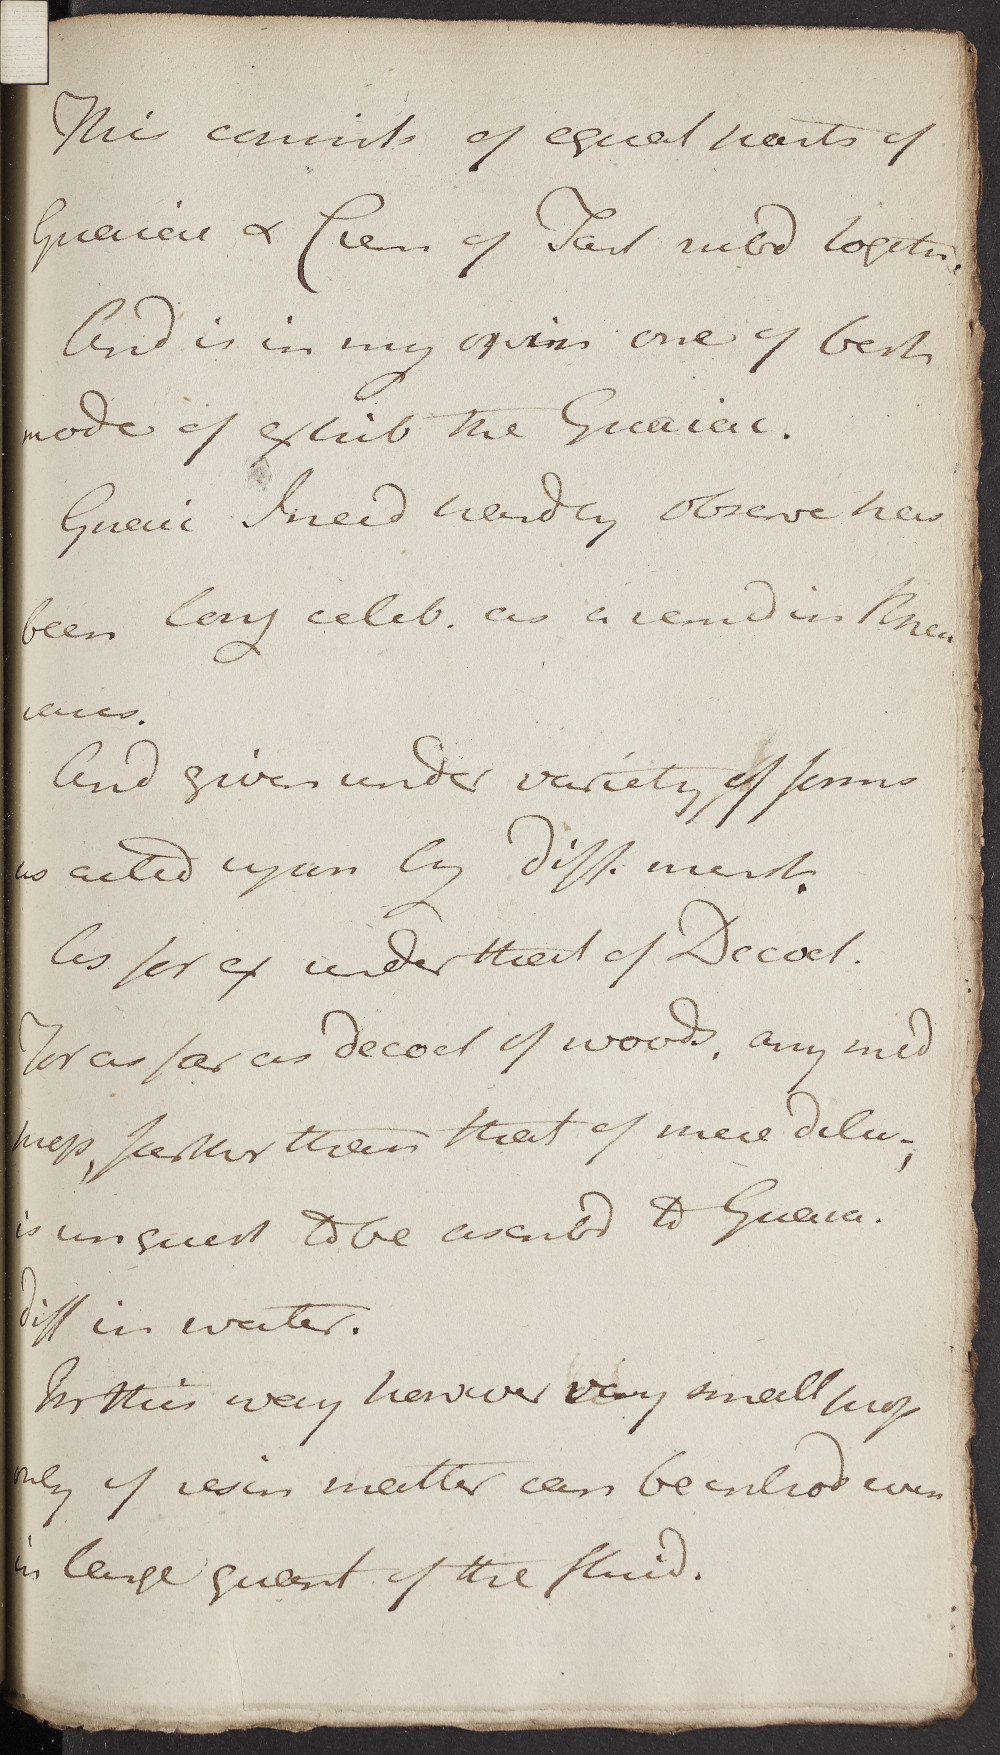 This consists of equal parts of
Guaiac & Crem of Tart rubd togethr.
And is in my opin one of best
mode of exhib the Guaiac.
Guaic I need hardly observe has
been long celeb. as a remd in Rheu
racs.
And given under variety of forms
as acted upon by diff. menst.
As for ex under that of Decoct.
For as far as decoct of woods, any med
prop, farther than that of mere dilu-,
is unquest to be ascribd to Guaia.
diff in water.
In this way however very small prop
only of resin matter can be introd even
in large quant of the fluid.